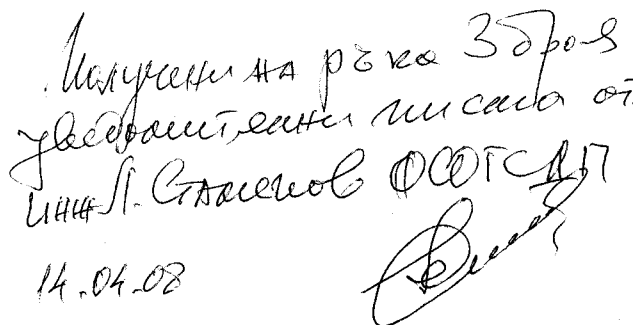 Получени на ръка 3 броя
уведомителни писма от
инж Л. Стаменов
14.04.08